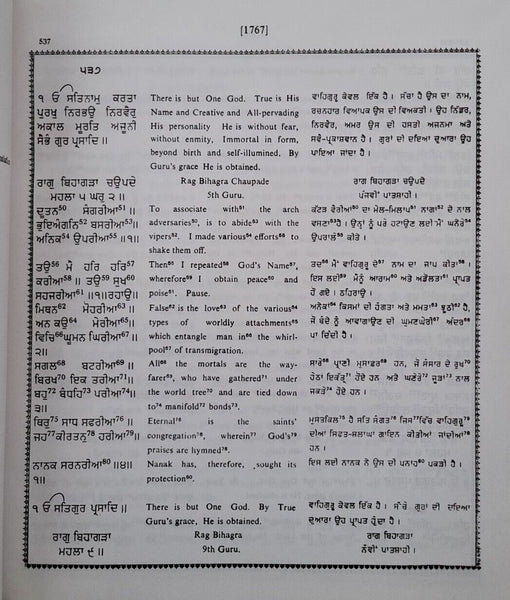 [1767]
537
੫੩੭
ੴ ਸਤਿਨਾਮੁ ਕਰਤਾ
ਪੁਰਖੁ ਨਿਰਭਉ ਨਿਰਵੈਰੁ
ਅਕਾਲ ਮੂਰਤਿ ਅਜੂਨੀ
ਸੈਭੰ ਗੁਰ ਪ੍ਰਸਾਦਿ ॥
There is but One God. True is His
Name and Creative and All-pervading
His personality He is without fear,
without enmity, Immortal in form,
beyond birth and self-illumined. By
Guru's grace He is obtained.
ਵਾਹਿਗੁਰੂ ਕੇਵਲ ਇੱਕ ਹੈ। ਸੱਚਾ ਹੈ ਉਸ ਦਾ ਨਾਮ,
ਰਚਨਹਾਰ ਵਿਆਪਕ ਉਸ ਦੀ ਵਿਅਕਤੀ। ਉਹ ਨਿੱਡਰ,
ਨਿਰਵੈਰ, ਅਮਰ ਉਸ ਦੀ ਹਸਤੀ ਅਜਨਮਾ ਅਤੇ
ਸਵੈ-ਪ੍ਰਕਾਸ਼ਵਾਨ ਹੈ। ਗੁਰਾਂ ਦੀ ਦਇਆ ਦੁਆਰਾ ਉਹ
ਪਾਇਆ ਜਾਂਦਾ ਹੈ।
ਰਾਗੁ ਬਿਹਾਗੜਾ ਚਉਪਦੇ
ਮਹਲਾ ੫ ਘਰੁ ੨ ॥
Rag Bihagra Chaupade
5th Guru.
ਰਾਗ ਬਿਹਾਗੜਾ ਚਉਪਦੇ
ਪੰਜਵੀਂ ਪਾਤਸ਼ਾਹੀ।
ਦੂਤਨ⁵⁰ ਸੰਗਰੀਆ⁵¹ ॥
ਭੁਇਅੰਗਨਿ⁵² ਬਸਰੀਆ⁵³ ॥
ਅਨਿਕ⁵⁴ ਉਪਰੀਆ⁵⁵ ॥੧॥
To associate with⁵¹ the arch
adversaries⁵⁰, is to abide⁵³ with the
vipers⁵². I made various⁵⁴ efforts⁵⁵ to
shake them off.
ਕੱਟੜ ਵੈਰੀਆਂ⁵⁰ ਦਾ ਮੇਲ-ਮਿਲਾਪ⁵¹ ਨਾਗਾਂ⁵² ਦੇ ਨਾਲ
ਵਸਣਾ⁵³ ਹੈ। ਉਨ੍ਹਾਂ ਨੂੰ ਪਰੇ ਹਟਾਉਣ ਲਈ ਮੈਂ ਘਨੇਰੇ⁵⁴
ਉਪਰਾਲੇ⁵⁵ ਕੀਤੇ।
ਤਉ⁵⁶ ਮੈ ਹਰਿ ਹਰਿ⁵⁷
ਕਰੀਆ⁵⁸ ॥ ਤਉ⁵⁹ ਸੁਖ⁶⁰
ਸਹਜਰੀਆ⁶¹ ॥੧॥ਰਹਾਉ॥
Then⁵⁶ I repeated⁵⁸ God's Name⁵⁷,
wherefore⁵⁹ I obtain peace⁶⁰ and
poise⁶¹. Pause.
ਤਦ⁵⁶ ਮੈਂ ਵਾਹਿਗੁਰੂ ਦੇ ਨਾਮ ਦਾ ਜਾਪ ਕੀਤਾ⁵⁸।
ਇਸ ਲਈ⁵⁹ ਮੈਨੂੰ ਆਰਾਮ⁶⁰ ਅਤੇ ਅਡੋਲਤਾ⁶¹ ਪ੍ਰਾਪਤ
ਹੋ ਗਏ। ਠਹਿਰਾਉ।
ਮਿਥਨ⁶² ਮੋਹਰੀਆ⁶³ ॥
ਅਨ ਕਉ⁶⁴ ਮੇਰੀਆ⁶⁵ ॥
ਵਿਚਿ⁶⁶ ਘੂਮਨ ਘਿਰੀਆ⁶⁷ ॥
੨॥
False⁶² is the love⁶³ of the various⁶⁴
types of worldly attachments⁶⁵
which entangle man in⁶⁶ the whirl-
pool⁶⁷ of transmigration.
ਅਨੇਕਾਂ⁶⁴ ਕਿਸਮਾਂ ਦੀ ਹੰਗਤਾ ਅਤੇ ਮਮਤਾ⁶³ ਝੂਠੀ⁶² ਹੈ,
ਜੋ ਬੰਦੇ ਨੂੰ ਆਵਾਗਾਉਣ ਦੀ ਘੁਮਣਘੇਰੀ⁶⁷ ਅੰਦਰ⁶⁶
ਪਾ ਦਿੰਦੀ ਹੈ।
ਸਗਲ⁶⁸ ਬਟਰੀਆ⁶⁹ ॥
ਬਿਰਖ⁷⁰ ਇਕ ਤਰੀਆ⁷¹ ॥
ਬਹੁ⁷² ਬੰਧਹਿ⁷³ ਪਰੀਆ⁷⁴ ॥
੩॥
All⁶⁸ the mortals are the way-
farer⁶⁹, who have gathered⁷¹ under
the world tree⁷⁰ and are tied down
to⁷⁴ manifold⁷² bonds⁷³.
ਸਾਰੇ⁶⁸ ਪ੍ਰਾਣੀ ਮੁਸਾਫ਼ਰ⁶⁹ ਹਨ, ਜੋ ਸੰਸਾਰ ਦੇ ਰੁਖ⁷⁰
ਹੇਠਾਂ ਇਕੱਤਰ⁷¹ ਹੋਏ ਹਨ ਅਤੇ ਘਣੇਰੇ⁷² ਜੂੜਾਂ⁷³ ਨਾਲ
ਜਕੜੇ⁷⁴ ਹੋਏ ਹਨ।
ਥਿਰੁ⁷⁵ ਸਾਧ ਸਫਰੀਆ⁷⁶ ॥
ਜਹ⁷⁷ ਕੀਰਤਨੁ⁷⁸ ਹਰੀਆ⁷⁹ ॥
Eternal⁷⁵ is the saints'
congregation⁷⁶, wherein⁷⁷ God's⁷⁹
praises are hymned⁷⁸.
ਮੁਸਤਕਿਲ⁷⁵ ਹੈ ਸਤਿ ਸੰਗਤ⁷⁶ ਜਿਸ⁷⁷ਵਿੱਚ ਵਾਹਿਗੁਰੂ⁷⁹
ਦੀਆਂ ਸਿਫਤ-ਸ਼ਲਾਘਾਂ ਗਾਇਨ ਕੀਤੀਆਂ ਜਾਂਦੀਆਂ⁷⁸
ਹਨ।
ਨਾਨਕ ਸਰਨਰੀਆ⁸⁰ ॥੪॥
੧॥
Nanak has, therefore, sought its
protection⁸⁰.
ਇਸ ਲਈ ਨਾਨਕ ਨੇ ਉਸ ਦੀ ਪਨਾਹ⁸⁰ ਪਕੜੀ ਹੈ।
ੴ ਸਤਿਗੁਰ ਪ੍ਰਸਾਦਿ ॥
There is but One God. By True
Guru's grace, He is obtained.
ਵਾਹਿਗੁਰੂ ਕੇਵਲ ਇੱਕ ਹੈ। ਸੱਚੇ ਗੁਰਾਂ ਦੀ ਦਇਆ
ਦੁਆਰਾ ਉਹ ਪ੍ਰਾਪਤ ਹੁੰਦਾ ਹੈ।
ਰਾਗੁ ਬਿਹਾਗੜਾ
ਮਹਲਾ ੯ ॥
Rag Bihagra
9th Guru.
ਰਾਗ ਬਿਹਾਗੜਾ
ਨੌਵੀਂ ਪਾਤਸ਼ਾਹੀ।